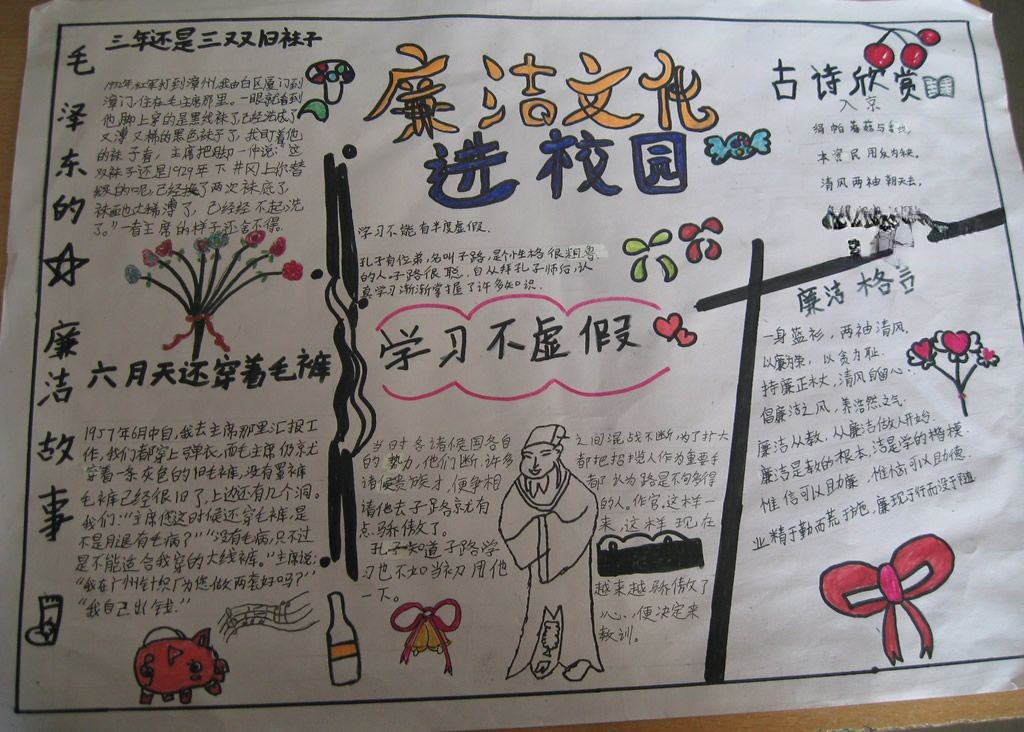 毛泽东的
廉洁故事
三年还是三双旧袜子
1932年,红军打到漳州,我由白区厦门到
漳门,住在毛主席那里。一眼就看到
他脚上穿的是黑线袜了已经洗成了
又薄又稀的黑色袜子了,我盯着他
的袜子看,主席把脚一伸说:“这
双袜子还是1929年下井冈上你替
缝的呢,已经换了两次袜底了,
袜面也太稀薄了,已经经不起洗
了。”一看主席的样子还舍不得.
六月天还穿着毛裤
1957年6月中旬,我去主席那里汇报工
作,我们都穿上单衣,而毛主席仍京尤
穿着一条灰色的旧毛裤,没有罩裤
毛裤已经很旧了,上边还有几个洞。
我们:“主席您这时候还穿毛裤,是
不是月退有毛病?”“没有毛病,只不过
是不能适合我穿的大线裤。”主席说:
“我在广州针织厂为您做两套好吗?”
“我自己出钱。”
廉洁文化
进校园
学习不能有半虚假.
孔子有位弟,名叫子路,是个性格很粗鲁
的人.子路很聪,自从拜孔子师后,认
真学习渐渐掌握了许多知识.
学习不虚假
当时各诸侯国各自
的势力,他们断,许多
诸侯贵族才,便争相
请他去子路京尤有
点骄傲了。
孔子知道子路学
习也不如当初用他
一下。
之间混战不断,为了扩大
都把招览人作为重要手
都认为路是不可多得
的人。作官,这样一
来,这样现在
越来越骄傲了
心、便决定来
教训。
古诗欣赏
入京
绢帕蘑菇与香线,
本资民用反为殃。
清风两袖朝天去,
廉洁格言
一身蓝衫,两袖清风,
以廉为荣,以贪为耻.
持廉正大,清风自留心.
倡廉洁之风,养浩然之气.
廉洁从教,从廉洁做人开始.
廉洁是教的根本,洁是学的楷模.
惟信可以助廉,惟恬可以助德.
业精于勤而荒于